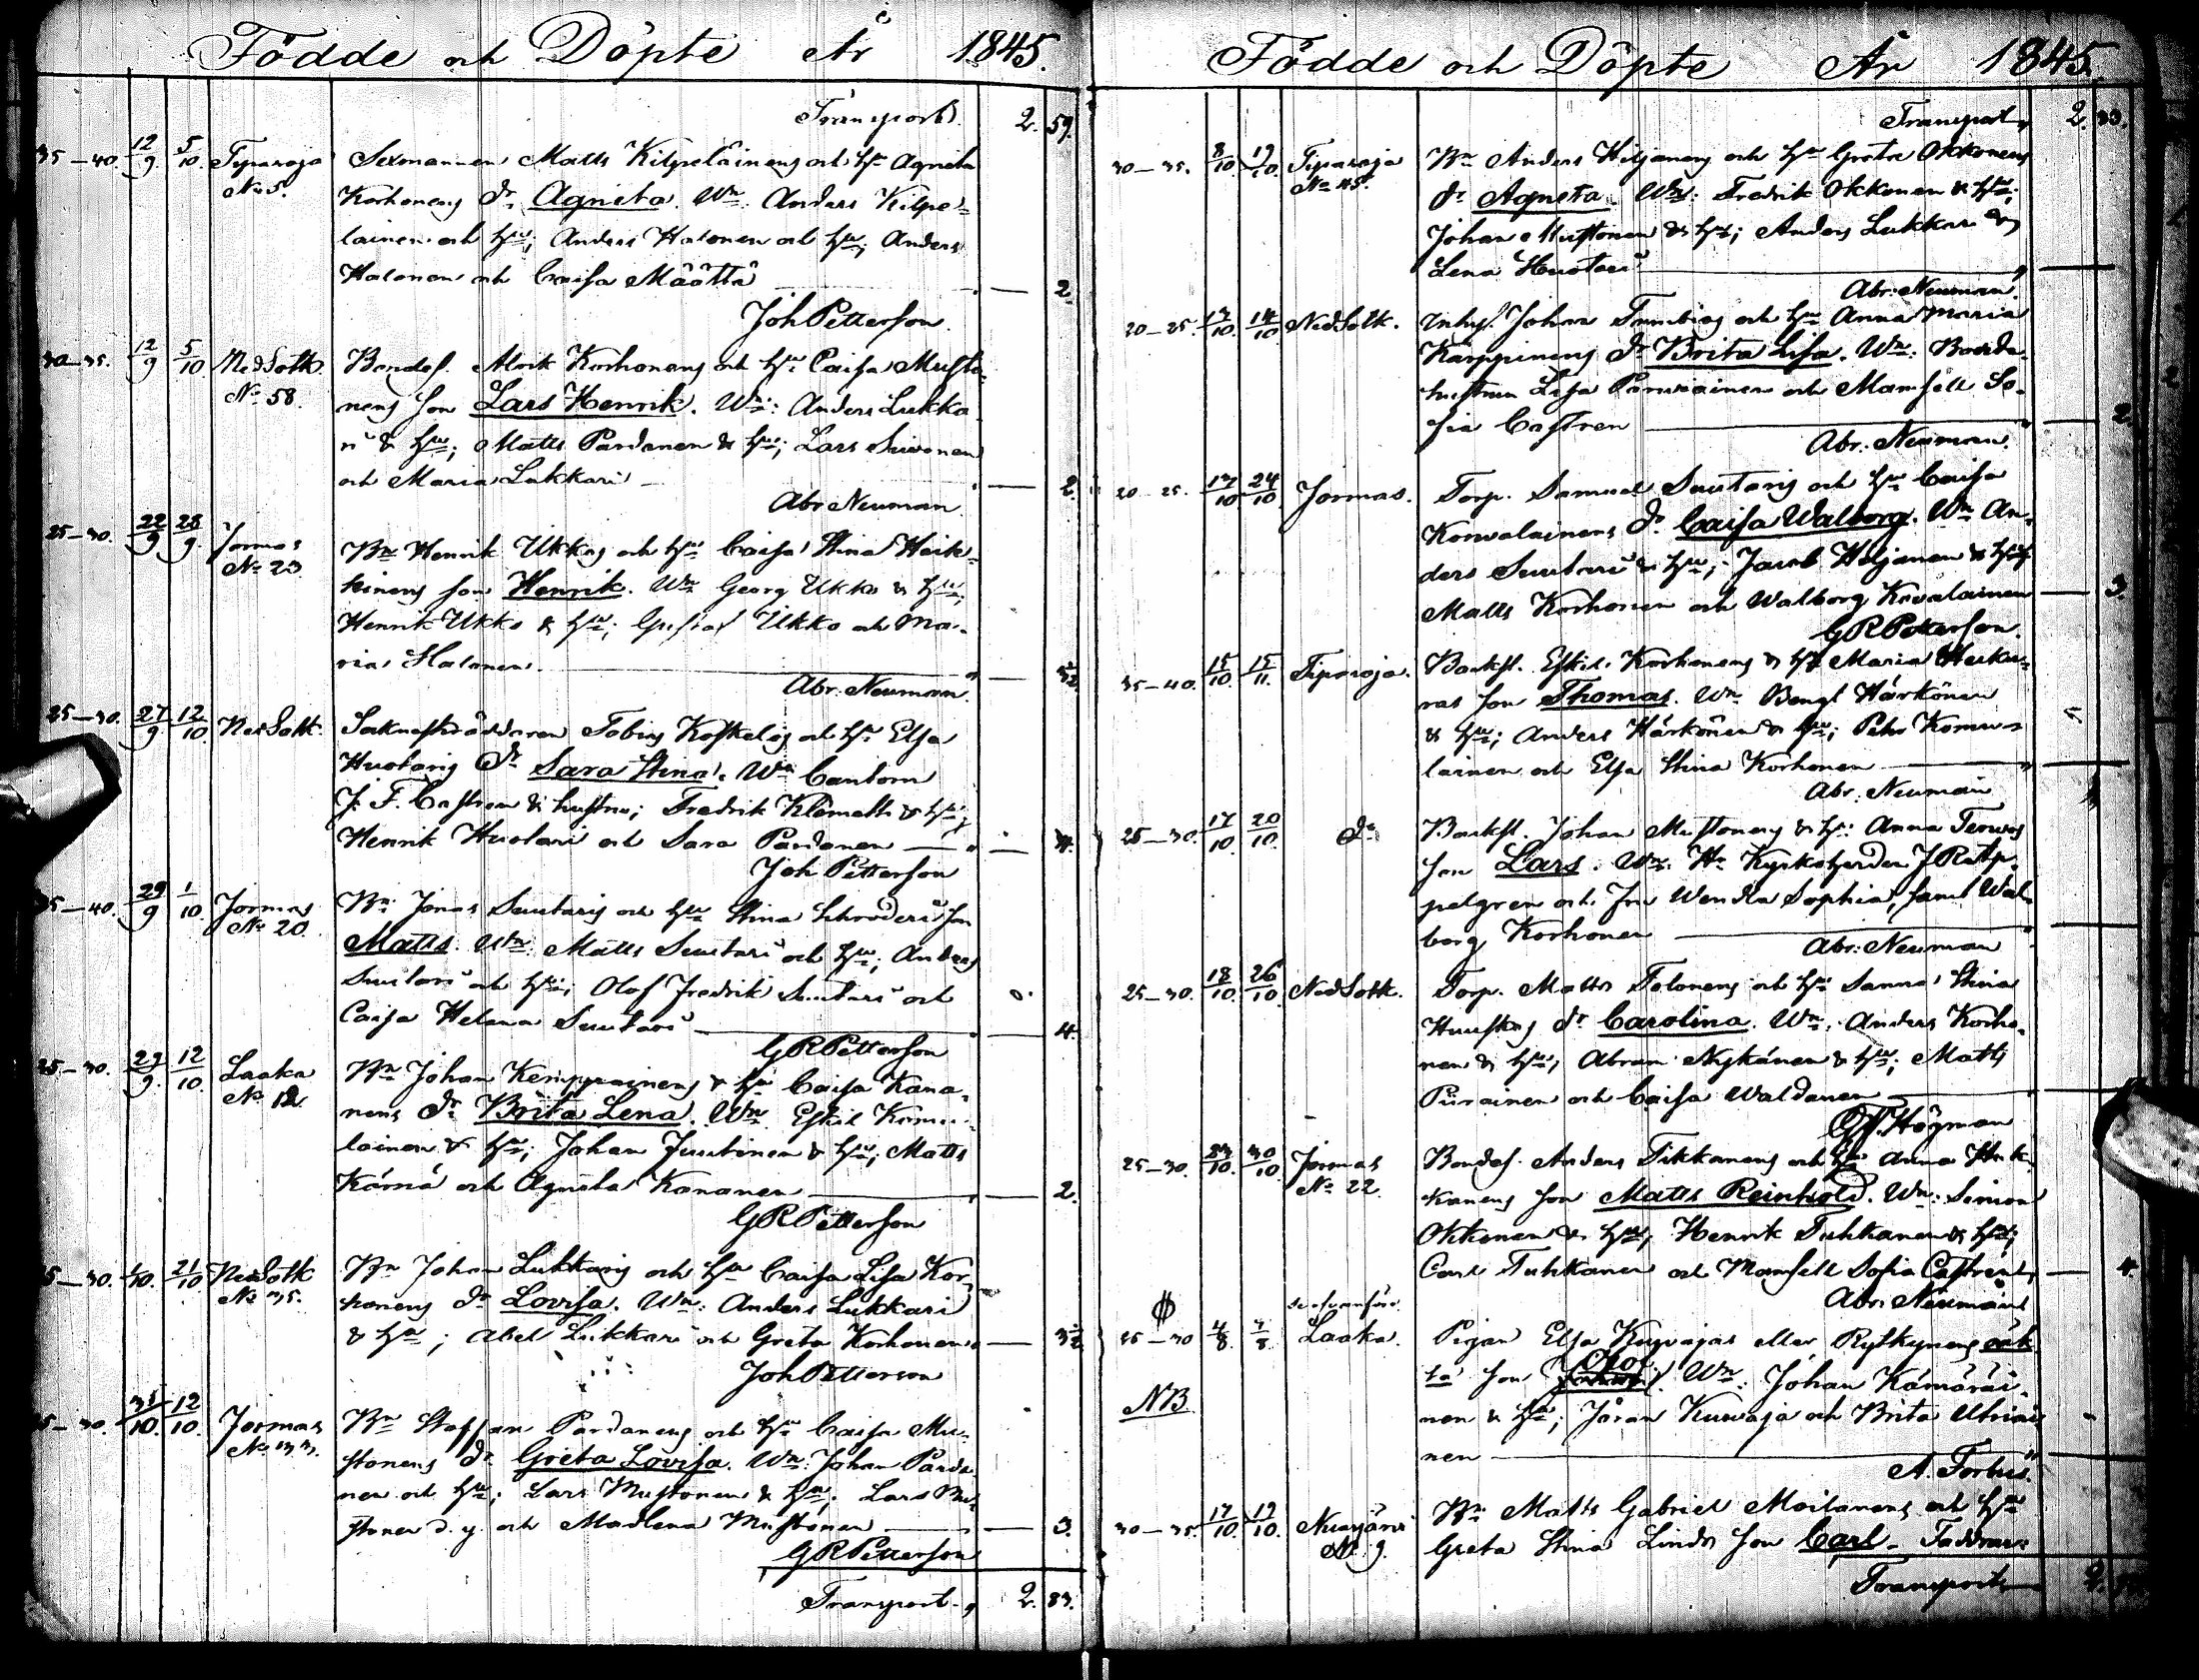 Födde och Döpte År 1845.
Transport. 2. 59.
35–40. 12/9. 5/10. Tiparoja Sexmannen Matts Kilpeläinens och hu Agneta
No 5. Korhonens dr Agneta. Wn. Anders Kilpe-
lainen och hu; Anders Halonen och hu; Anders
Halonen och Caisa Määttä 2.
Joh Petterson.
30–35. 12/9 5/10 Ned Sotk. Bondes. Korhonens och hu Caisa Musto-
No 58. nens son Lars Henrik. Wn: Anders Lukka
ri & hu; Matts Pardanen & hu; Lars
och Maria Lukkari 2.
Abr Neuman
25–30. 22/9 28/9. Jormas Bn Henrik Ukkos och hu Caisa Stina Heik-
No 23. kinens son Henrik. Wn Georg Ukko & hu;
Henrik Ukko & hu; Ukko och Ma-
ria Halonen.
Abr. Neuman.
25–30. 27/9 12/10. Ned Sotk. Tobias Koskelos och hu Elsa
Huotaris dr Sara Stina. Wn Cantorn
J. F. Castren & hustru; Fredrik Klemetti & hu;
Henrik Huotari och Sara Pardanen 4.
Joh Petterson
35–40. 29/9 1/10. Jormas Bn Jonas Suutaris och hu Stina Schroderi son
No 20. Matts. Wn: Matts Suutari och hu; Anders
Suutari och hu; Olof Fredrik Suutari och
Caisa Helena Suutari 4.
G R Petterson
25–30. 29/9. 12/10. Laaka Bn Johan Kemppainens & hu Caisa Kana-
No 12. nens dr Brita Lena. Wn Eskil Komu-
lainen & hu; Johan Juntinen & hu; Matts
Kärnä och Agneta Kananen 2.
G R Petterson
/10. 21/10 Ned Sotk Bn Johan Lukkaris och hu Caisa Lisa Kor-
No 35. honens dr Lovisa. Wn: Anders Lukkari
& hu; Abel Lukkari och Greta Korhonen
Joh Petterson
/10. 12/10. Jormas Bn Staffan Pardanens och hu Caisa Mu-
No 33. stonens dr Greta Lovisa. Wn: Johan Parda-
nen och hu; Lars Mustonen & hu; Lars Mu-
stonen d. y. och Madlena Mustonen 3.
G R Petterson
Transport 2. 83.
Födde och Döpte År 1845.
Transport 2.
30–35. 8/10. 19/10. Tiparoja Bn Anders Hiljanens och hu Greta Okkonens
No 45. dr Agneta. Wn: Fredrik Okkonen & hu;
Johan Mustonen & hu; Anders Lukkari &
Lena Huotari
Abr. Neuman.
20–25. 14/10 Ned Sotk. Inhys. Johan och hu Anna Maria
Karppinens dr Brita Lisa. Wn: Bonde-
hustrun Lisa Parviainen och Mamsell So-
fia Castren 2.
Abr. Neuman.
20–25. 24/10 Jormas. Torp. Samuel Suutaris och hu Caisa
Kowalainens dr Caisa Walborg. Wn An-
ders Suutari & hu; Jacob Hiljanen & hu;
Matts Korhonen och Walborg Kovalainen 3.
G R Petterson.
35–40. 15/10. 15/11. Tiparoja. Backst. Eskil Korhonens & hu Maria
ras son Thomas. Wn Bengt Härkönen
& hu; Anders Härkönen & hu; Petr Komu-
lainen och Elsa Stina Korhonen
Abr. Neuman
25–30. 17/10. 20/10. do Backst. Johan Mustonens & hu: Anna Tervos
son Lars. Wn: Hr Kyrkoherden J R App-
pelgren och Fru Wendla Sophia, samt Wal-
borg Korhonen
Abr. Neuman
25–30. 18/10. 26/10 Ned Sotk. Torp. Matts Tolonens och hu Sanna Stina
dr Carolina. Wn. Anders Korho-
nen & hu; Abram Nykänen & hu; Matts
Puirainen och Caisa Waldanen
Högman
25–30. 30/10 Jormas Bondes. Anders Tikkanens och hu Anna
No 22. kanens son Matts Reinhold. Wn: Simon
Okkonen & hu; Henrik Tuhkanen & hu;
Carl Tuhkanen och Mamsell Sofia Castren 4.
Abr. Neuman
25–30 4/8. 7/8. Laaka. Pigan Elsa Kuvajas eller Rytkynens oäk-
NB ta son Olof. Wn: Johan Kämäräi-
nen & hu; Jöran Kuvaja och Brita
nen
A. Forbus.
30–35. 17/10. 19/10. Nuasjärvi Bn Matts Gabriel Moilanens och hu
No 9. Greta Stina Linds son Carl. Faddrar:
Transport